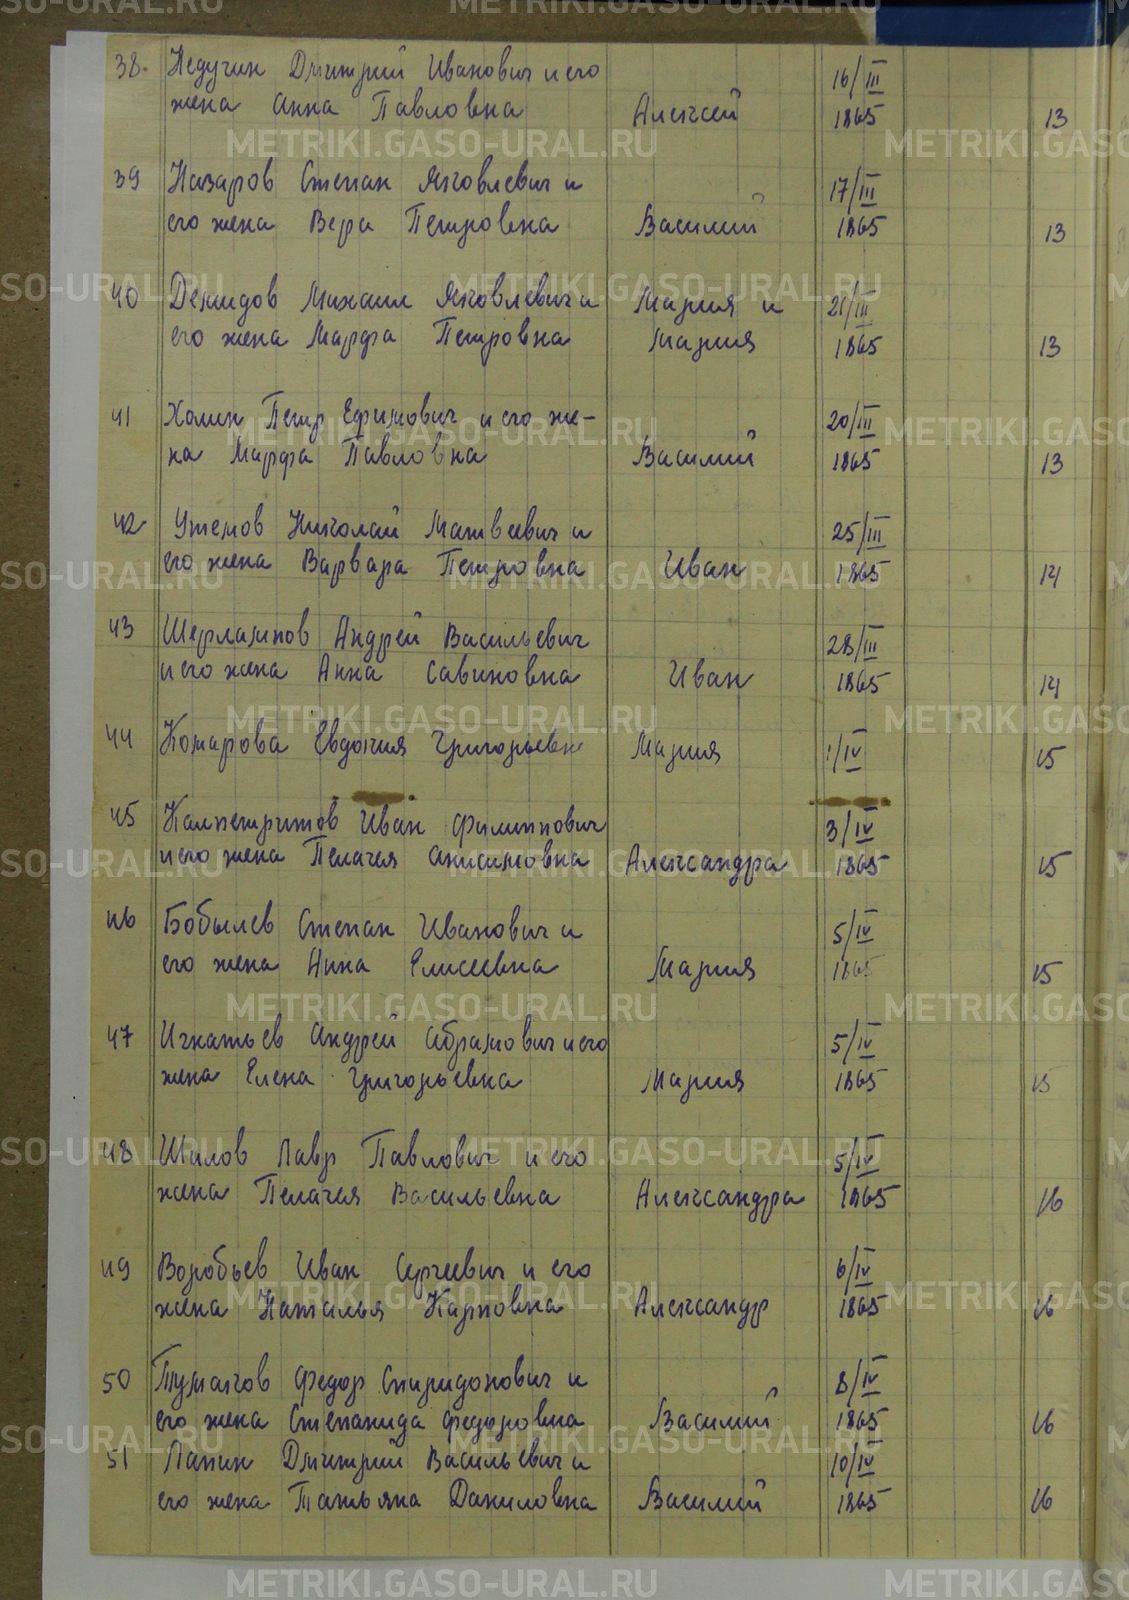 38. Недугин Дмитрий Иванович и его 16/III
жена Анна Павловна Алексей 1865 13
39 Назаров Степан Яковлевич и 17/III
его жена Вера Петровна Василий 1865 13
40 Демидов Михаил Яковлевич и Мария и 21/III
его жена Марфа Петровна Мария 1865 13
41 Холин Петр Ефимович и его же- 20/III
на Марфа Павловна Василий 1865 13
42 Утемов Николай Матвеевич и 25/III
его жена Варвара Петровна Иван 1865 14
43 Шерлаимов Андрей Васильевич 28/III
и его жена Анна Савиновна Иван 1865 14
44 Комарова Евдокия Григорьевн Мария 1/IV 15
45 Калистратов Иван Филиппович 3/IV
и его жена Пелагея Анисимовна Александра 1865 15
46 Бобылев Степан Иванович и 5/IV
его жена Анна Елисеевна Мария 1865 15
47 Игнатьев Андрей Абрамович и его 5/IV
жена Елена Григорьевна Мария 1865 15
48 Шилов Лавр Павлович и его 5/IV
жена Пелагея Васильевна Александра 1865 16
49 Воробьев Иван Сергеевич и его 6/IV
жена Наталья Карповна Александр 1865 16
50 Тумаков Федор Спиридонович и 8/IV
его жена Степанида Федоровна Василий 1865 16
51 Папин Дмитрий Васильевич и 10/IV
его жена Татьяна Даниловна Василий 1865 16
METRIKI.GASO-URAL.RU